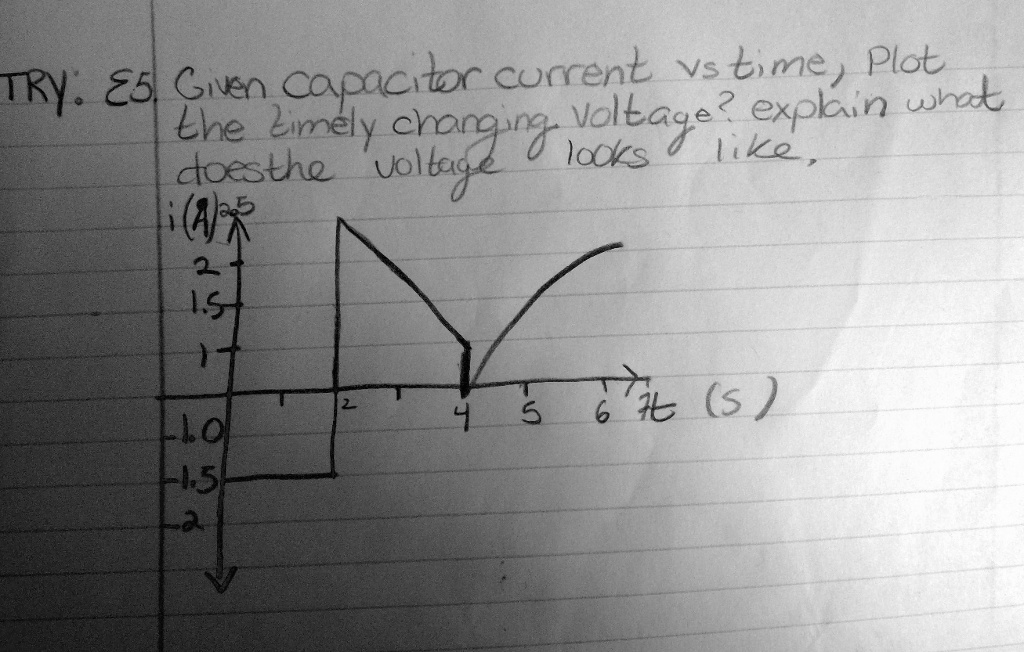 TRY: E5 Given capacitor current vs time, Plot
the timely changing voltage? explain what
does the voltage looks like,
i(A) 2.5
2
1.5
1
2 4 5 6 7t (s)
-1.0
-1.5
-2